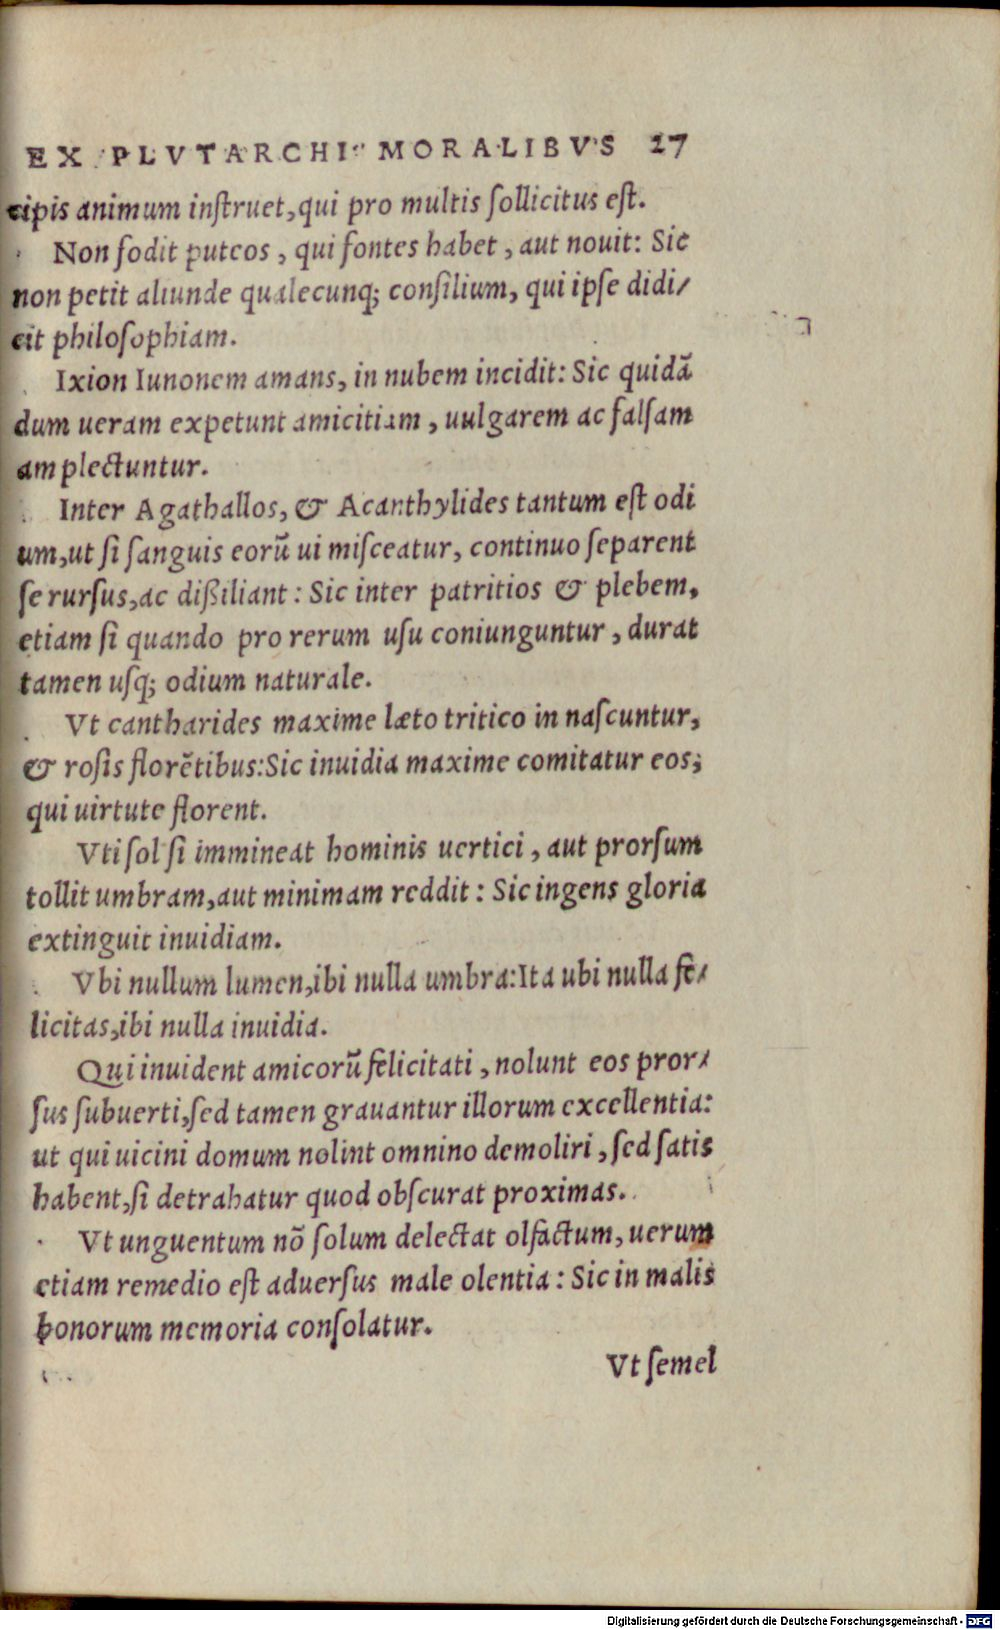 EX PLVTARCHI MORALIBVS 27
cipis animum inſtruet,qui pro multis ſollicitus eſt.
Non fodit puteos , qui fontes habet , aut nouit: Sic
non petit aliunde qualecunq; conſilium, qui ipſe didi⸗
cit philoſophiam.
Ixion Iunonem amans, in nubem incidit: Sic quidã
dum ueram expetunt amicitiam , uulgarem ac falſam
amplectuntur.
Inter Agathallos, & Acanthylides tantum eſt odi
um,ut ſi ſanguis eorũ ui miſceatur, continuo ſeparent
ſe rurſus,ac dißiliant : Sic inter patritios & plebem,
etiam ſi quando pro rerum uſu coniunguntur , durat
tamen uſq; odium naturale.
Vt cantharides maxime læto tritico in naſcuntur,
& roſis florẽtibus:Sic inuidia maxime comitatur eos;
qui uirtute florent.
Vti ſol ſi immineat hominis uertici , aut prorſum
tollit umbram,aut minimam reddit : Sic ingens gloria
extinguit inuidiam.
Vbi nullum lumen,ibi nulla umbra:Ita ubi nulla fe⸗
licitas,ibi nulla inuidia.
Qui inuident amicorũ felicitati , nolunt eos pror⸗
ſus ſubuerti,ſed tamen grauantur illorum excellentia:
ut qui uicini domum nolint omnino demoliri , ſed ſatis
habent,ſi detrahatur quod obſcurat proximas.
Vt unguentum nõ ſolum delectat olfactum, uerum
etiam remedio eſt aduerſus male olentia : Sic in malis
bonorum memoria conſolatur.
Vt ſemel
Digitalisierung gefördert durch die Deutsche Forschungsgemeinschaft - DFG